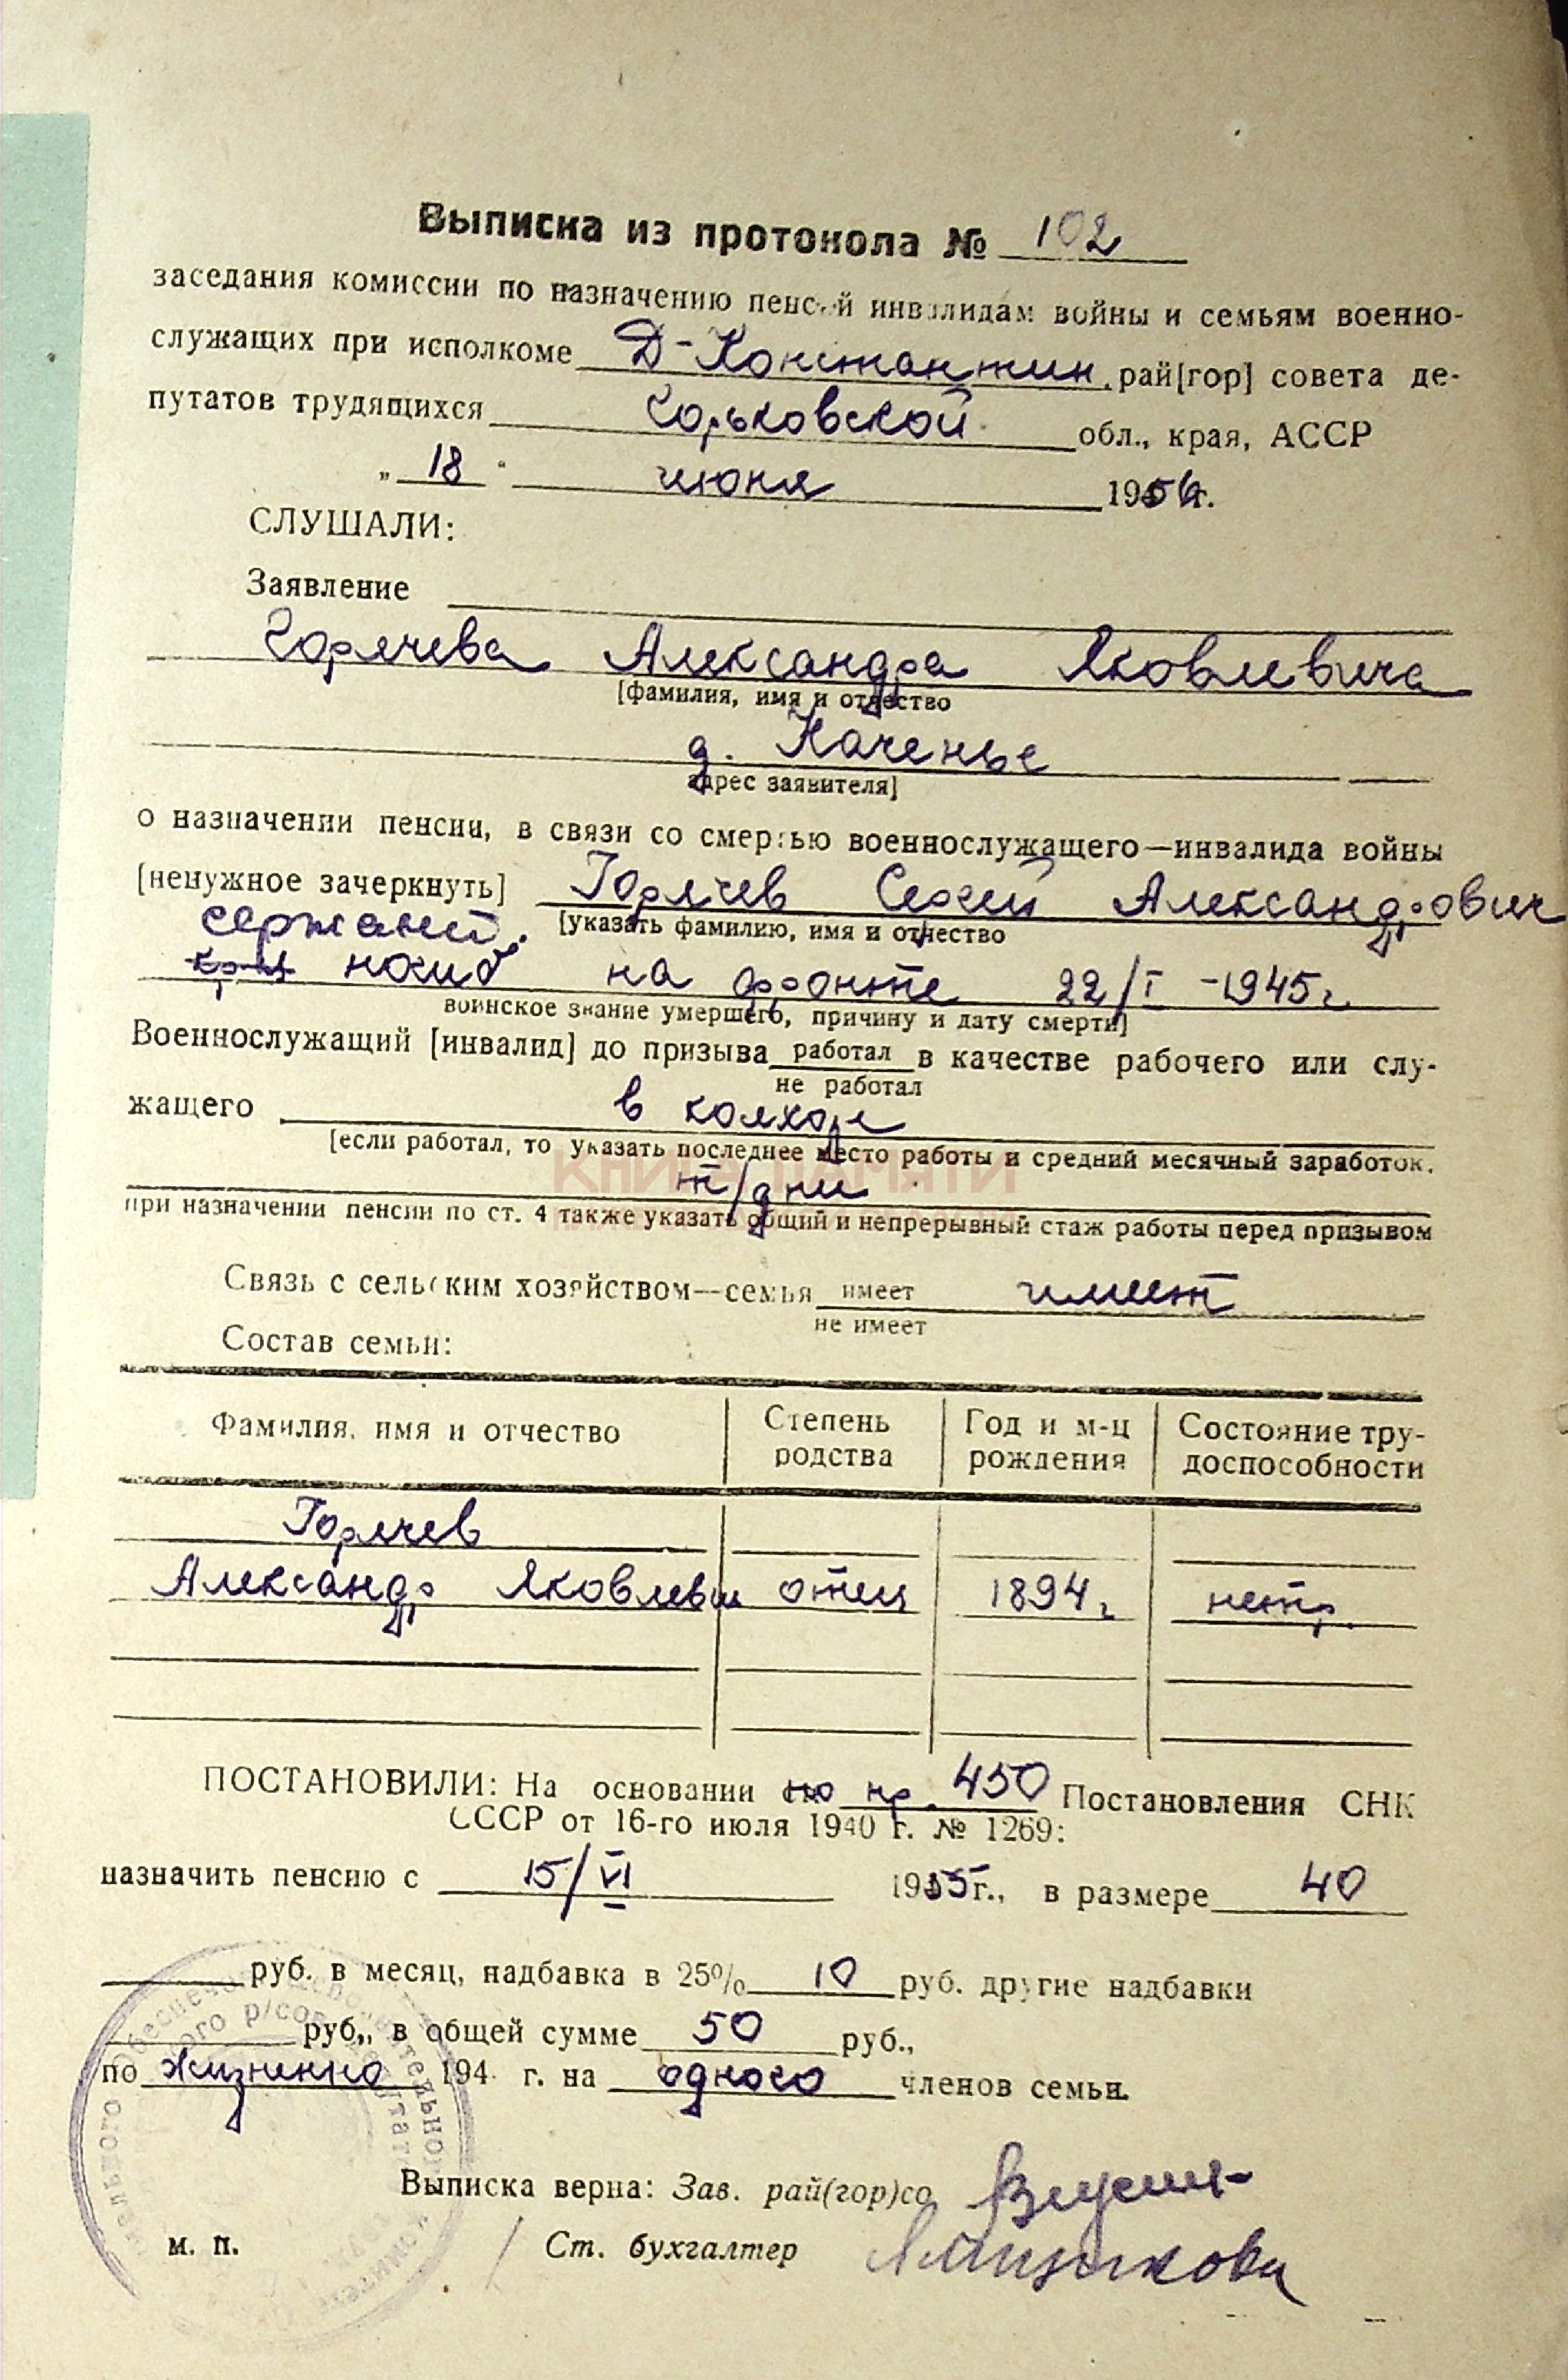 Выписка из протокола № 102
заседания комиссии по назначению пенсий инвалидам войны и семьям военно-
служащих при исполкоме Д-Константин. рай[гор] совета де-
путатов трудящихся Горьковской обл., края, АССР
„ 18 “ июня 1956г.
СЛУШАЛИ:
Заявление
Горячева Александра Яковлевича
[фамилия, имя и отчество
д. Каченье
адрес заявителя]
о назначении пенсии, в связи со смертью военнослужащего—инвалида войны
[ненужное зачеркнуть] Горячев Сергей Александрович
сержант. [указать фамилию, имя и отчество
погиб на фронте 22/I -1945г.
воинское звание умершего, причину и дату смерти]
Военнослужащий [инвалид] до призыва работал в качестве рабочего или слу-
не работал
жащего в колхозе
[если работал, то указать последнее место работы и средний месячный заработок.
КНИГА ПАМЯТИ
т/дни
при назначении пенсии по ст. 4 также указать общий и непрерывный стаж работы перед призывом
Связь с сельским хозяйством—семья имеет имеет
не имеет
Состав семьи:
Фамилия, имя и отчество Степень родства Год и м-ц рождения Состояние тру-доспособности
Горячев
Александр Яковлевич отец 1894г. нетр.
ПОСТАНОВИЛИ: На основании пр. 450 Постановления СНК
СССР от 16-го июля 1940 г. № 1269:
назначить пенсию с 15/VI 1955г., в размере 40
руб. в месяц, надбавка в 25% 10 руб. другие надбавки
руб., в общей сумме 50 руб.,
по жизненно 194 г. на одного членов семьи.
Выписка верна: Зав. рай(гор)со
м. п. Ст. бухгалтер